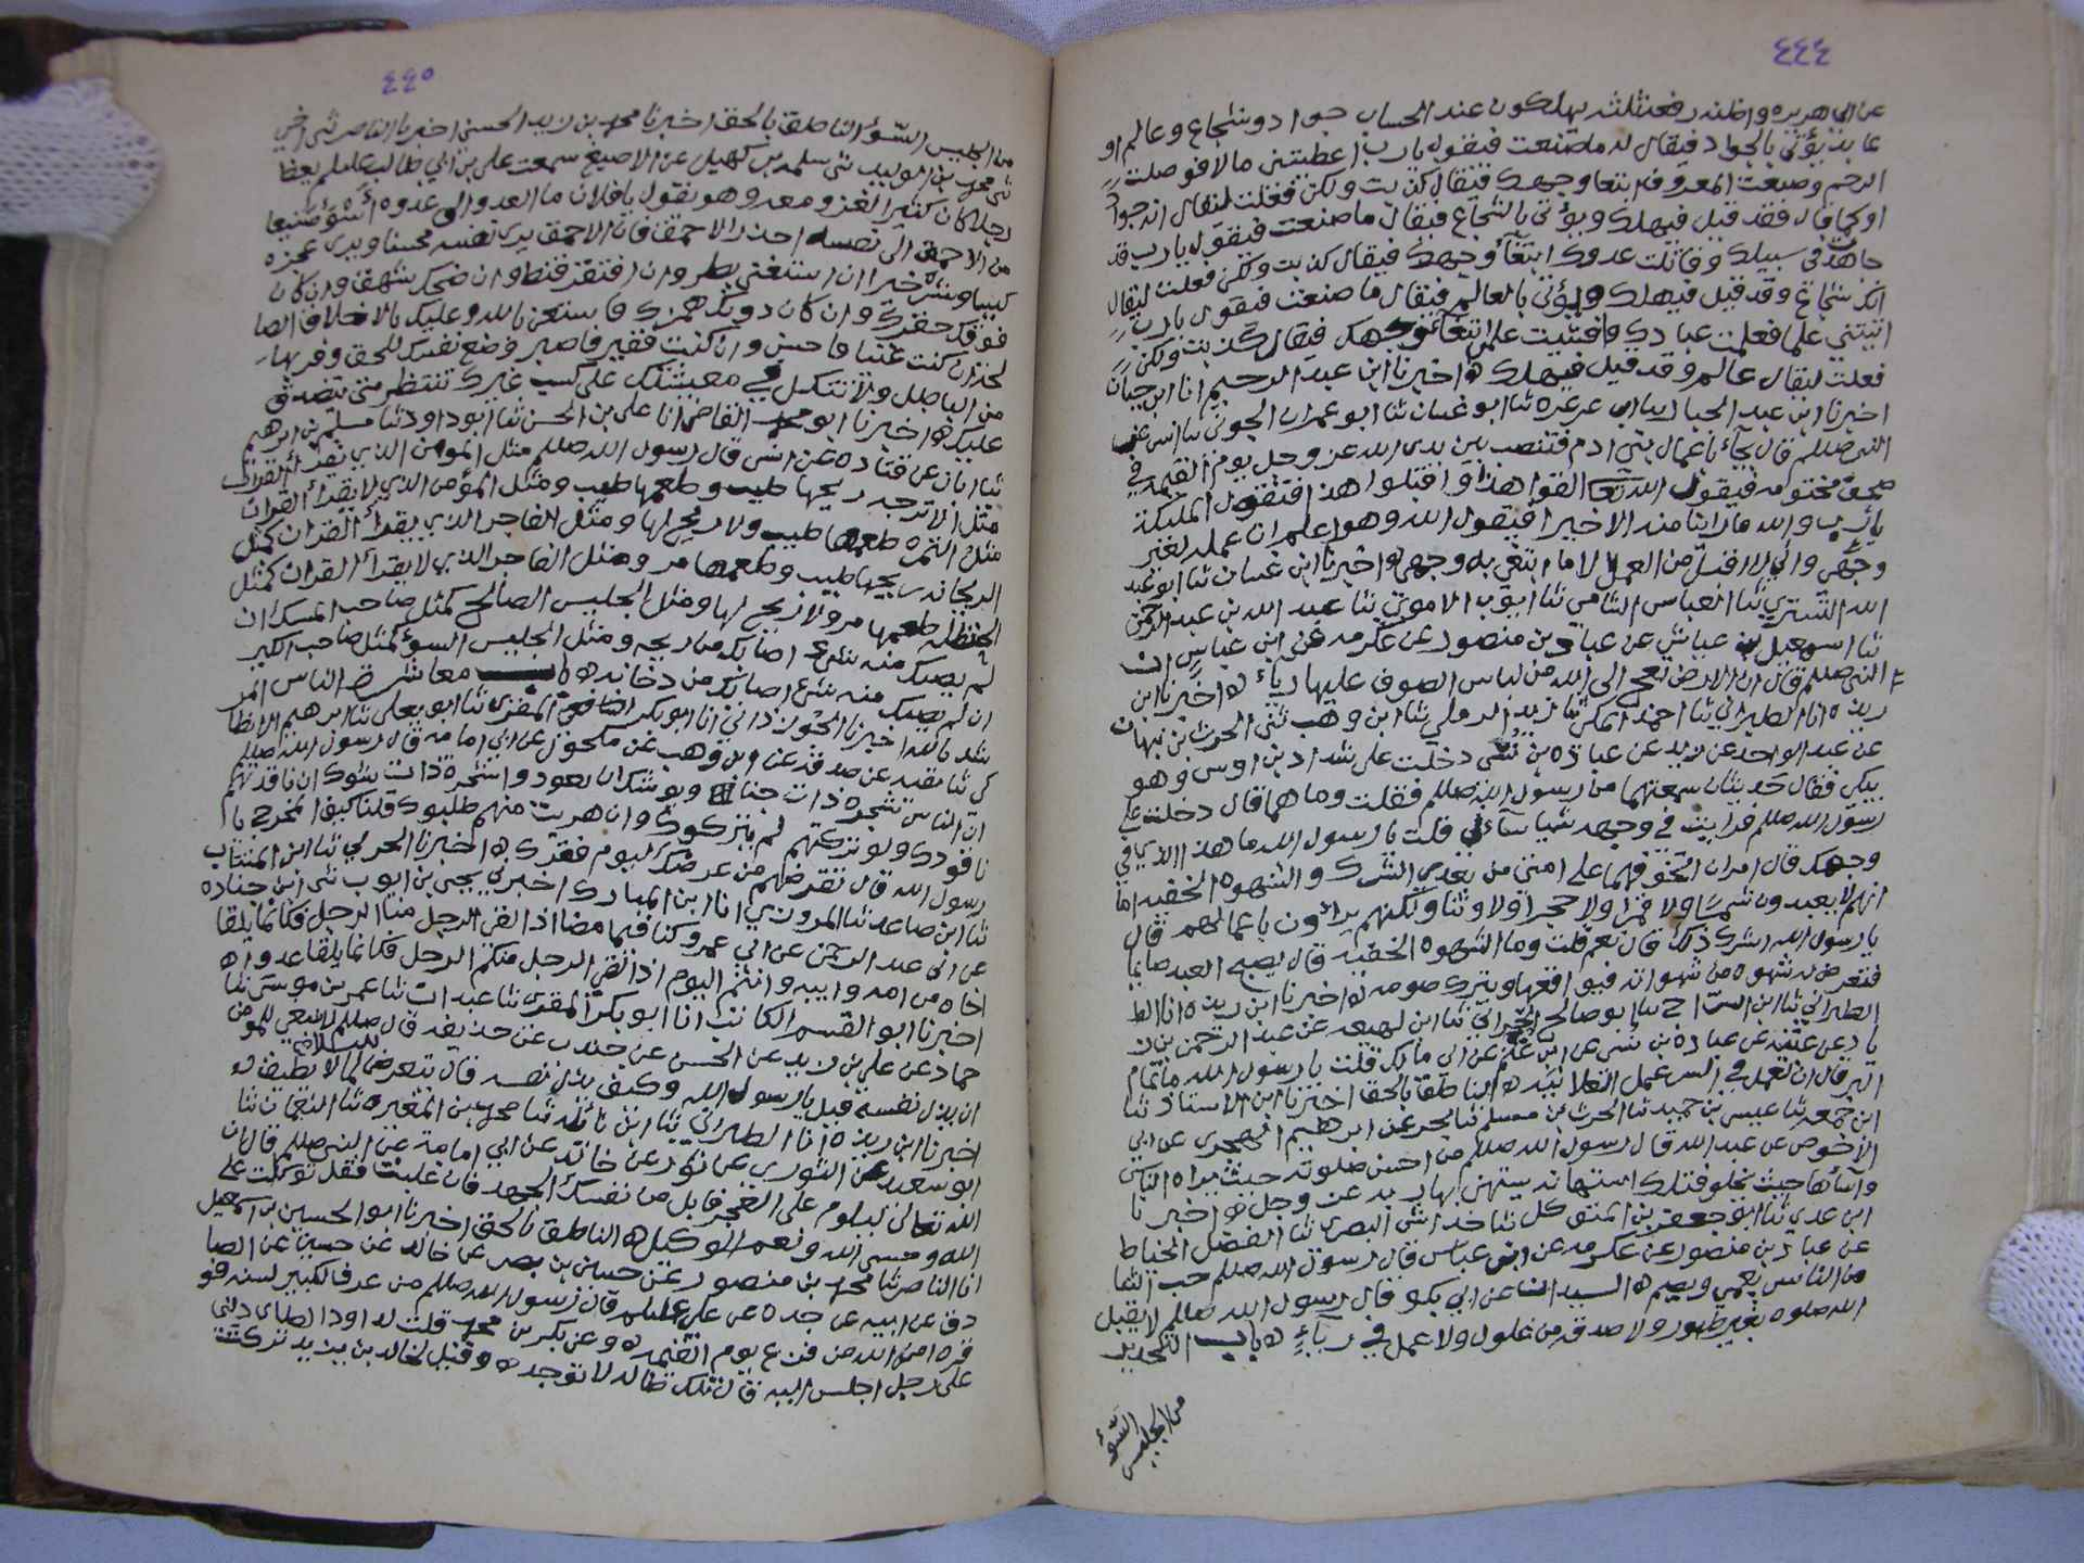 ٤٤٤
عن ابي هريره واظنه رفعه ثلثه يهلكون عند الحساب جواد وشجاع وعالم او
عابد يؤتى بالجواد فيقال له ما صنعت فيقول يا رب اعطيتني مالا فوصلت
الرحم وصنعت المعروف ابتغا وجهك فيقال كذبت ولكن فعلت ليقال انه جواد
او كما قال فقد قيل فيهلك ويؤتى بالشجاع فيقال ما صنعت فيقول يا رب قد
جاهدت في سبيلك وقاتلت عدوك ابتغآء وجهك فيقال كذبت ولكن فعلت ليقال
انك شجاع وقد قيل فيهلك ويؤتى بالعالم فيقال ما صنعت فيقول يا رب
اتيتني علما فعلمت عبادك وافشيت علمي ابتغآء وجهك فيقال كذبت ولكن
فعلت ليقال عالم وقد قيل فيهلك ه اخبرنا ابن عبد الرحيم انا ابن حيان
اخبرنا ابن عبد الجبار ابن ابي عرعره ثنا ابو غسان ثنا ابو عمران الجوني ثنا انس عن
النبي صللم قال يجآء باعمال بني ادم فتنصب بين يدي الله عز وجل يوم القيمه في
صحف مختومه فيقول الله تعا القوا هذا واقبلوا هذا فتقول الملئكة
يا رب والله ما راينا منه الا خيرا فيقول الله وهو اعلم ان عمله لغير
وجهي واني لا اقبل من العمل الا ما ابتغي به وجهي ه اخبرنا ابن غسان ثنا ابو عبد
الله التستري ثنا العباس الشامي ثنا ايوب الاموي ثنا عبد الله بن عبد الرحمن
ثنا اسمعيل بن عياش عن عباد بن منصور عن عكرمه عن ابن عباس ان
النبي صللم قال ان الارض لتعج الى الله من لباس الصوف عليها رياء ه اخبرنا ابن
ريذه انا الطبراني ثنا احمد المكي ثنا زيد الرملي ثنا ابن وهب ثني الحرث بن نبهان
عن عبد الواحد عن زيد عن عبادة بن نسي دخلت على شداد بن اوس وهو
يبكي فقال حديثان سمعتهما من رسول الله صللم فقلت وما هما قال دخلت على
رسول الله صللم فرايت في وجهه شيا ساءني قلت يا رسول الله ما هذا الذي في
وجهك قال امران اتخوفهما على امتي من بعدي الشرك والشهوه الخفيه اما
انهم لا يعبدون شمسا ولا قمرا ولا حجرا ولا وثنا ولكنهم يرآءون باعمالهم قال
يا رسول الله اشرك ذلك قال نعم قلت وما الشهوه الخفيه قال يصبح العبد صايما
فتعرض له شهوه من شهواته فيواقعها ويترك صومه ه اخبرنا ابن ريذه انا الط
الطبراني ثنا ابن السراج ثنا ابو صالح الحراني ثنا ابن لهيعه عن عبد الرحمن بن ز
ياد عن عتبه عن عباده بن نسي عن ابن غنم عن ابي مالك قلت يا رسول الله ما تمام
البر قال ان تعمل في السر عمل العلانيه ه الناطق بالحق اخبرنا ابن الاستاذ ثنا
ابن جمعه ثنا عيسى بن حميد ثنا الحرث بن مسلم ثنا بحر عن ابرهيم الهجري عن ابي
الاحوص عن عبد الله قال رسول الله صللم من احسن صلوته حيث يراه الناس
واسآءها حيث يخلو فتلك استهانه يستهين بها ربه عز وجل ه اخبرنا
ابن عدي ثنا ابو جعفر بن المتوكل ثنا خداش البصري ثنا الفضل الخياط
عن عباد بن منصور عن عكرمه عن ابن عباس قال رسول الله صللم حب الثنا
من الناس يعمي ويصم ه السيدان عن ابي بكر قال رسول الله صللم لا يقبل
الله صلوه بغير طهور ولا صدقه من غلول ولا عمل في ريآء ه باب التحذير
من الجليس السّوء
٤٤٥
من الجليس السّوء الناطق بالحق اخبرنا محمد بن زيد الحسني اخبرنا الناصر ثني اخي
ثني محمد بن الوليد ثني سلمه بن كهيل عن الاصبغ سمعت علي بن ابي طالب عليلم يعظ
رجلا كان كثير الغزو معه وهو يقول يا فلان ما العدو الى عدوه أسْوَءَ صنيعا
من الاحمق الى نفسه احذر الاحمق فان الاحمق يرى نفسه محسنا ويرى عجزه
كيسا وشره خيرا ان استغنى بطر وان افتقر قنط وان ضحك شهق وان كان
فوقك حقرك وان كان دونك همزك فاستعن بالله وعليك بالاخلاق الصا
لحه ان كنت غنيا فاحسن وان كنت فقير فاصبر وضع نفسك للحق وفر بها
من الباطل ولا تتكل في معيشتك على كسب غيرك تنتظر متى يتصدق
عليك ه اخبرنا ابو محمد القاضي انا علي بن الحسن ثنا ابو داود ثنا مسلم بن ابرهيم
ثنا ابان عن قتاده عن انس قال رسول الله صللم مثل المومن الذي يقرأ القران
مثل الاترجه ريحها طيب وطعمها طيب ومثل المؤمن الذي لا يقرأ القران
مثل التمره طعمها طيب ولا ريح لها ومثل الفاجر الذي يقرأ القران كمثل
الريحانه ريحها طيب وطعمها مر ومثل الفاجر الذي لا يقرأ القران كمثل
الحنظله طعمها مر ولا ريح لها ومثل الجليس الصالح كمثل صاحب المسك ان
لم يصبك منه شيء اصابك من ريحه ومثل الجليس السوء كمثل صاحب الكير
ان لم يصبك منه شيء اصابك من دخانه ه باب معاشرة الناس المر
شد بالله اخبرنا الجوزداني انا ابو بكر المقري ثنا ابو يعلى ثنا ابرهيم الانطا
كي ثنا بقيه عن صدقه عن ابن وهب عن مكحول عن ابي امامه قال رسول الله صللم
ان الناس شجره ذات جنا ويوشك ان يعودوا شجرة ذات شوك ان ناقدتهم
ناقدوك ولو تركتهم لم يتركوك وان هربت منهم طلبوك قلنا كيف المخرج يا
رسول الله قال تقرضهم من عرضك ليوم فقرك ه اخبرنا الحربي ثنا ابن المنتاب
ثنا ابن صاعد ثنا المروزي انا ابن المبارك اخبرني يحيى بن ايوب ثني ابن جناده
عن ابي عبد الرحمن عن ابي عمرو كنا فيما مضا اذا لقي الرجل منا الرجل فكانما يلقا
اخاه من امه وابيه وانتم اليوم اذا لقي الرجل منكم الرجل فكانما يلقا عدواه
اخبرنا ابو القسم الكاتب انا ابو بكر المقري ثنا عبدان ثنا عمر بن موسى ثنا
حماد عن علي بن زيد عن الحسن عن جندب عن حذيفه قال صللم لا ينبغي للمومن
ان يذل نفسه قيل يا رسول الله وكيف يذل نفسه قال يتعرض للبلاء لما لا يطيق ه
اخبرنا ابن ريذه انا الطبراني ثنا ابن نائله ثنا محمد بن المغيره ثنا النعمان ثنا
ابو سعيد عن الثوري عن ثور عن خالد عن ابي امامة عن النبي صللم قال ان
الله تعالى ليلوم على العجز فابل من نفسك الجهد فان غلبت فقل توكلت على
الله وحسبي الله ونعم الوكيل ه الناطق بالحق اخبرنا ابو الحسين بن اسمعيل
انا الناصر ثنا محمد بن منصور عن حسين بن نصر عن خالد عن حصين عن الصا
دق عن ابيه عن جده عن علي عليلم قال رسول الله صللم من عرف الكبير لسنه فو
قره امن الله من فزع يوم القيمه ه وعن بكر بن محمد قلت لداود الطاي دلني
على رجل اجلس اليه قال تلك ضاله لا توجد ه وقيل لخالد بن يزيد تركت